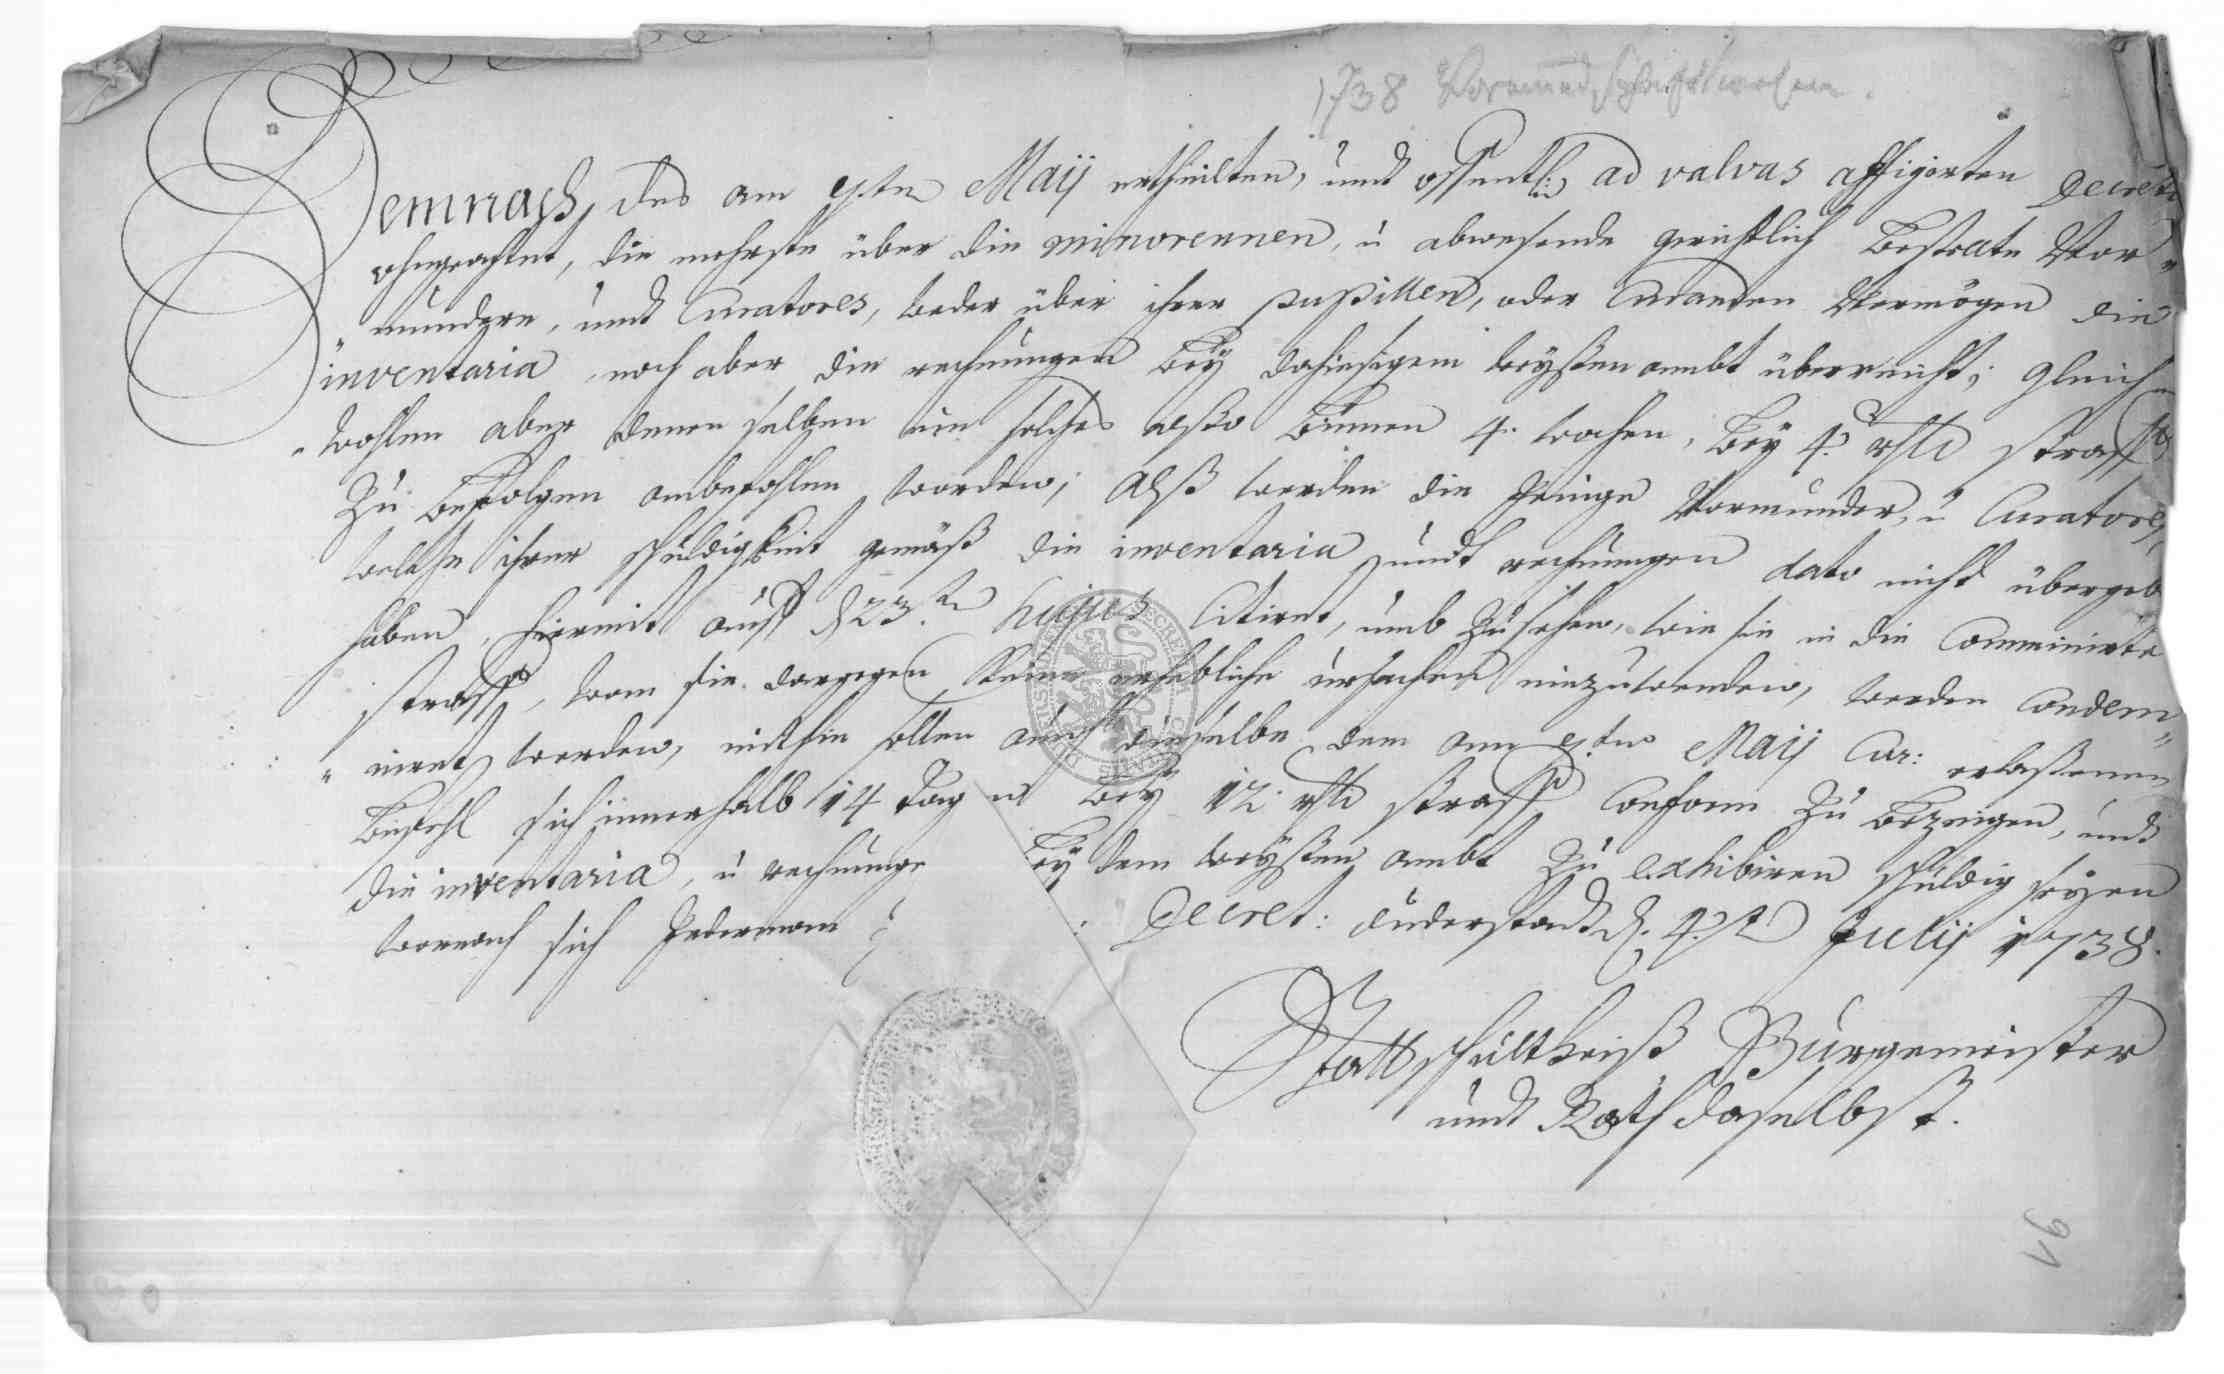 1738 Vormundschaftswesen.
Demnach des am 9ten Maij ertheilten, undt offentl: ad valvas affigirten Decreti
ohngeachtet, die mehrste über die minorennen, ü abwesende gerichtlich bestatte Vor„
„mündere, undt Curatores, weder über ihrer pupillen, oder Curanden Vermögen die
inventaria noch aber die rechnungen bey dahiesigem weyßen ambt überreicht; gleich„
„wohlen aber denen selben üm solches also binnen 4. wochen, bey 4. rthl straff
zu befolgen anbefohlen worden; Alß werden die Jenige Vormünder, ü Curatores,
welche ihrer schuldigkeit gemäß die inventaria undt rechnungen dato nicht übergeb
haben, hiermit auff d 23.ten hujus Citiret, umb zusehen, wie sie in die Comminirte
straff, wan sie dargegen keine erhebliche ursachen einzuwenden, werden Condem„
„niret werden, mithin sollen auch dieselbe dem am 9ten Maij Cur: erlaßenen
Befehl sich innerhalb 14 tagen bey 12 rthl straff Conform zu bezeigen, und
die inventaria, ü rechnunge bey dem weyßen ambt zu exhibiren schuldig seyen
wornach sich Jederman
Decret: Duderstadt d. 4.t Julij 1738.
Stattschultheiß Burgemeister
undt Rath daselbst.
91